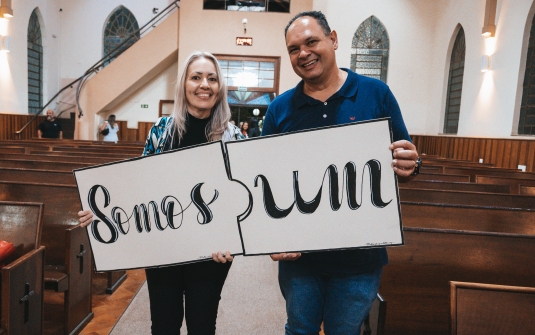 Somos um